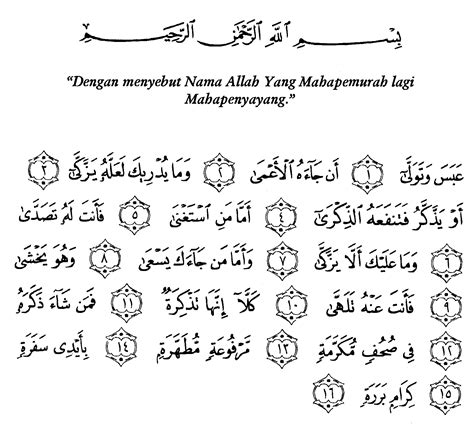 بِسْمِ اللَّهِ الرَّحْمَٰنِ الرَّحِيمِ
“Dengan menyebut Nama Allah Yang Mahapemurah lagi
Mahapenyayang.”
عَبَسَ وَتَوَلَّىٰ ١ أَن جَاءَهُ الْأَعْمَىٰ ٢ وَمَا يُدْرِيكَ لَعَلَّهُ يَزَّكَّىٰ ٣
أَوْ يَذَّكَّرُ فَتَنفَعَهُ الذِّكْرَىٰ ٤ أَمَّا مَنِ اسْتَغْنَىٰ ٥ فَأَنتَ لَهُ تَصَدَّىٰ
٦ وَمَا عَلَيْكَ أَلَّا يَزَّكَّىٰ ٧ وَأَمَّا مَن جَاءَكَ يَسْعَىٰ ٨ وَهُوَ يَخْشَىٰ
٩ فَأَنتَ عَنْهُ تَلَهَّىٰ ١٠ كَلَّا إِنَّهَا تَذْكِرَةٌ ١١ فَمَن شَاءَ ذَكَرَهُ
١٢ فِي صُحُفٍ مُّكَرَّمَةٍ ١٣ مَّرْفُوعَةٍ مُّطَهَّرَةٍ ١٤ بِأَيْدِي سَفَرَةٍ
١٥ كِرَامٍ بَرَرَةٍ ١٦